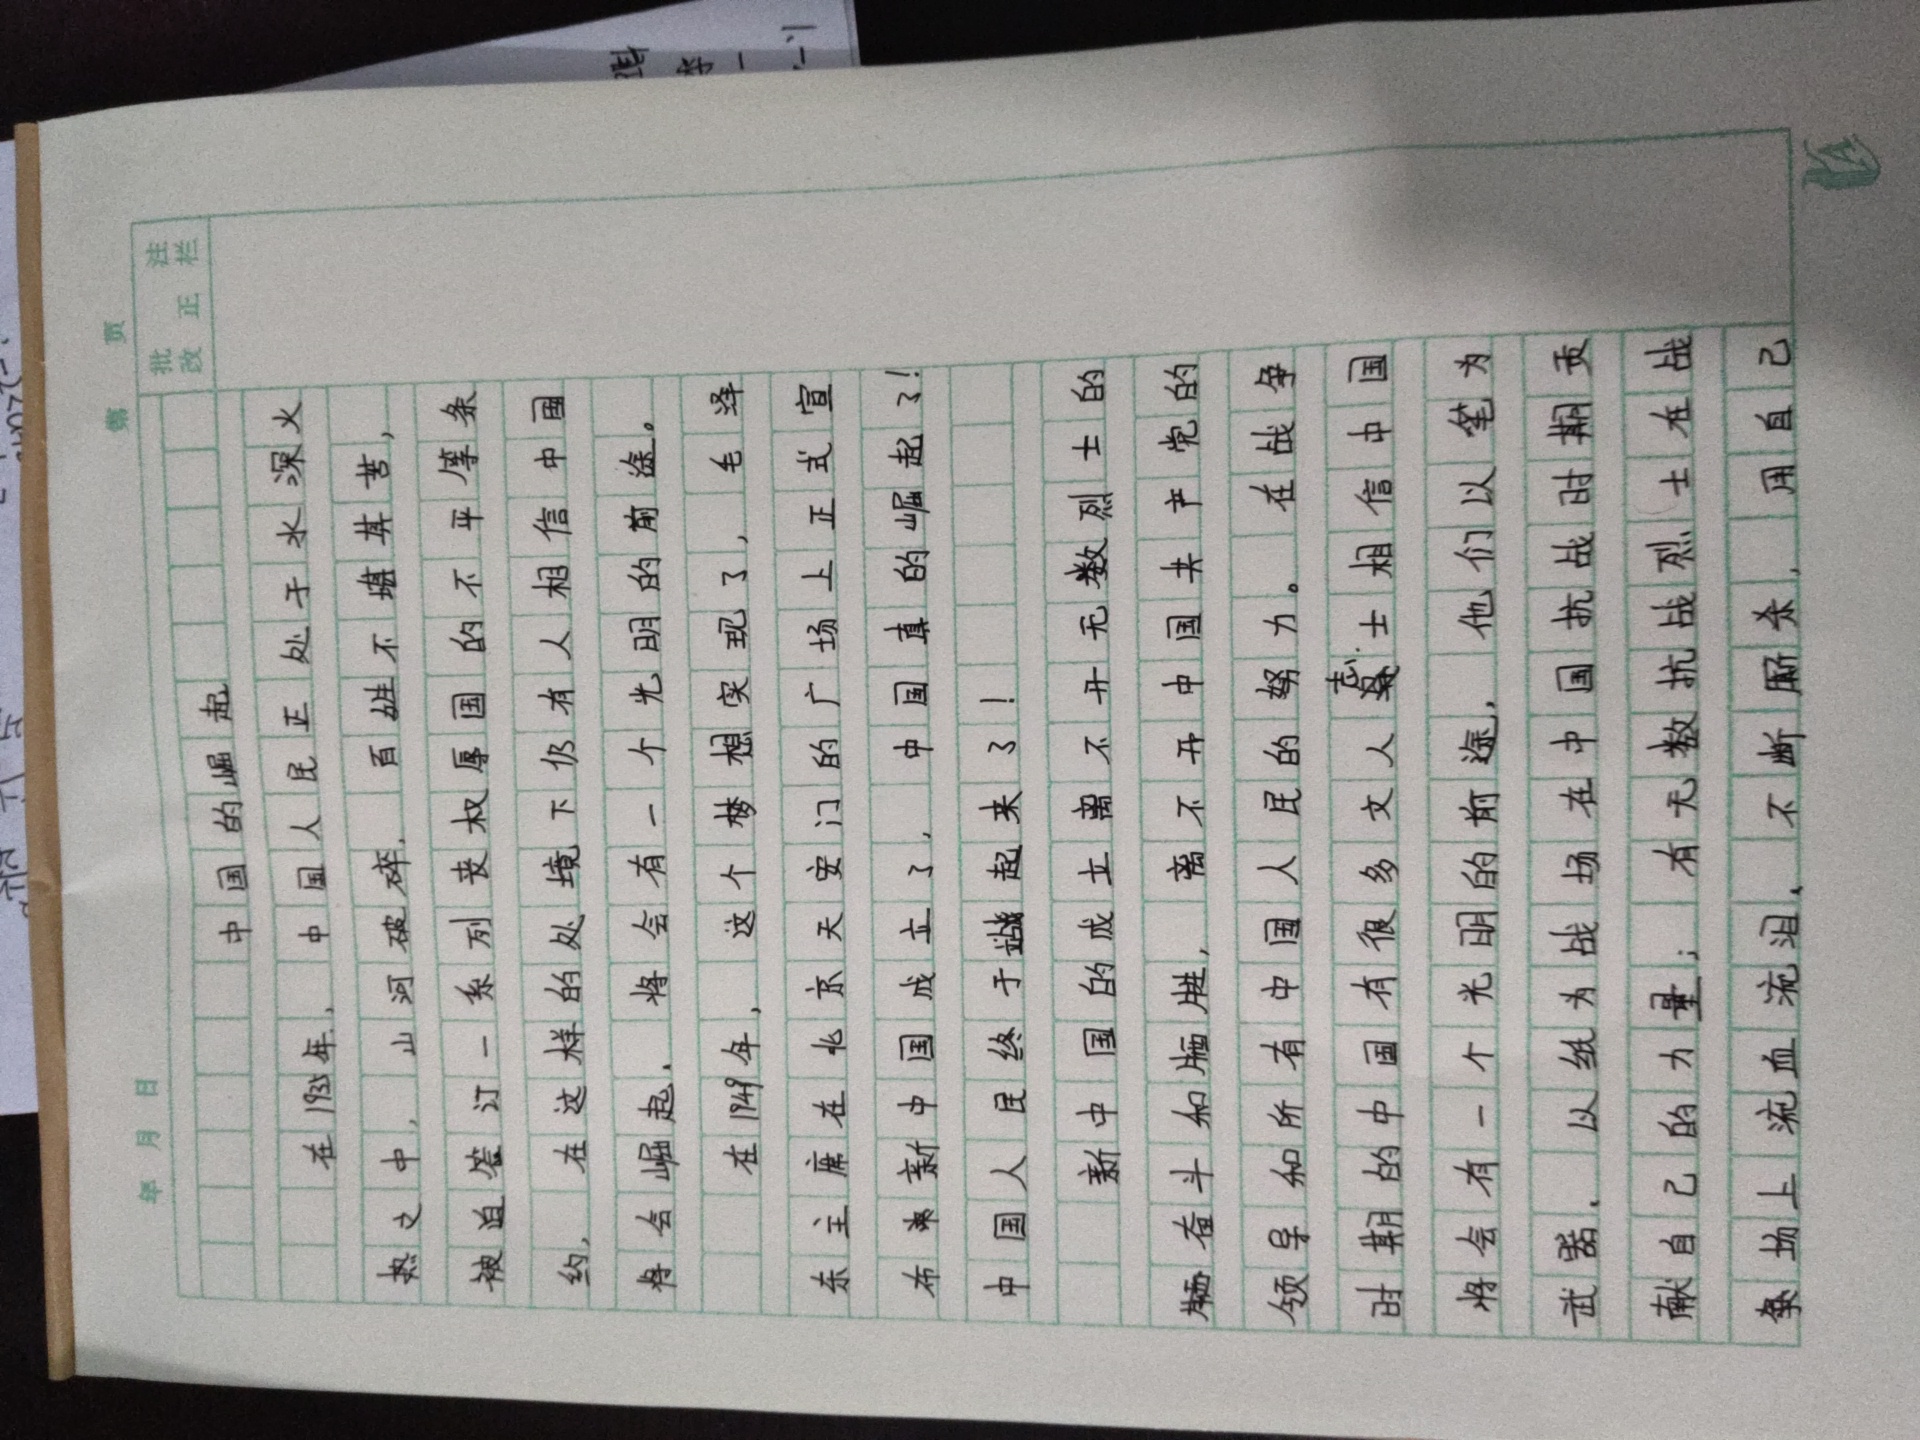 第 页
年 月 日
批改 正 注栏
中国的崛起
在1935年、中国人民正处于水深火
热之中，山河破碎、百姓不堪其苦，
被迫签订一系列丧权辱国的不平等条
约，在这样的处境下仍有人相信中国
将会崛起、将会有一个光明的前途。
在1949年，这个梦想实现了，毛泽
东主席在北京天安门的广场上正式宣
布新中国成立了，中国真的崛起了！
中国人民终于站起来了！
新中国的成立离不开无数烈士的
奋斗和牺牲，离不开中国共产党的
领导和所有中国人民的努力。在战争
时期的中国有很多文人志士相信中国
将会有一个光明的前途，他们以笔为
武器、以纸为战场在中国抗战时期贡
献自己的力量；有无数抗战烈士在战
争场上流血流泪、不断厮杀、用自己